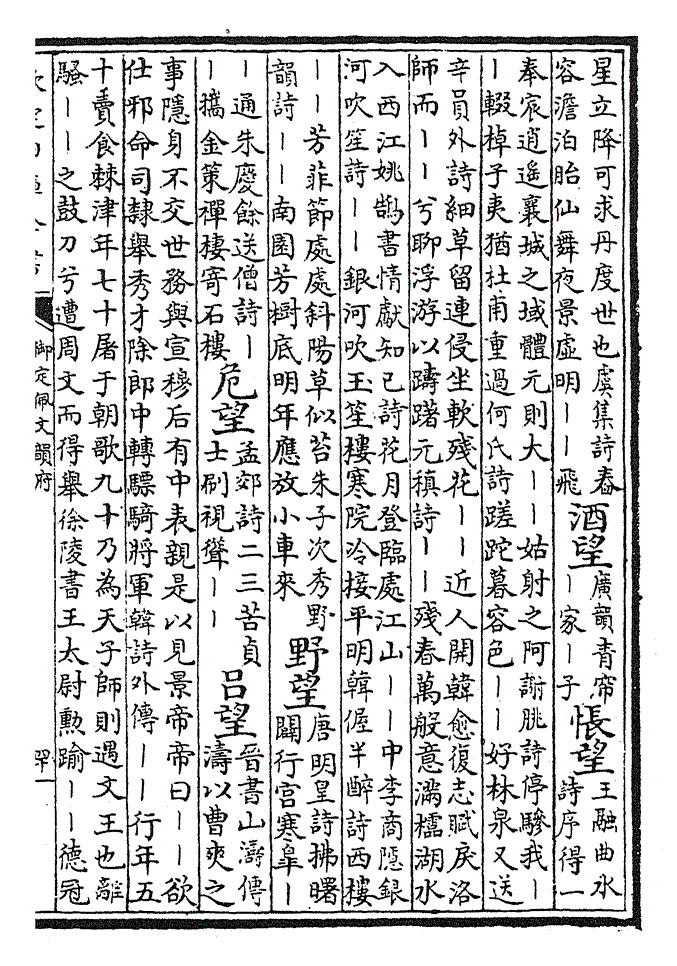 星立降可求丹度世也虞集詩春
容澹泊胎仙舞夜景虛明丨丨飛
酒望
廣韻青帘
丨家丨子
悵望
王融曲水
詩序得一
奉宸逍遙襄城之域體元則大丨丨姑射之阿謝朓詩停驂我丨
丨輟棹子夷猶杜甫重過何氏詩蹉跎暮容色丨丨好林泉又送
辛員外詩細草留連侵坐軟殘花丨丨近人開韓愈復志賦戾洛
師而丨丨兮聊浮游以躊躇元稹詩丨丨殘春萬般意滿櫺湖水
入西江姚鵠書情獻知已詩花月登臨處江山丨丨中李商隱銀
河吹笙詩丨丨銀河吹玉笙樓寒院冷接平明韓偓半醉詩西樓
丨丨芳菲節處處斜陽草似苔朱子次秀野
韻詩丨丨南園芳樹底明年應放小車來
野望
唐明皇詩拂曙
闢行宮寒皐丨
丨通朱慶餘送僧詩丨
丨攜金策禪棲寄石樓
危望
孟郊詩二三苦貞
士刷視聳丨丨
呂望
晉書山濤傳
濤以曹爽之
事隱身不交世務與宣穆后有中表親是以見景帝帝曰丨丨欲
仕邪命司隸舉秀才除郎中轉驃騎將軍韓詩外傳丨丨行年五
十賣食棘津年七十屠于朝歌九十乃為天子師則遇文王也離
騷丨丨之鼓刀兮遭周文而得舉徐陵書王太尉勲踰丨丨德冠
御定佩文韻府